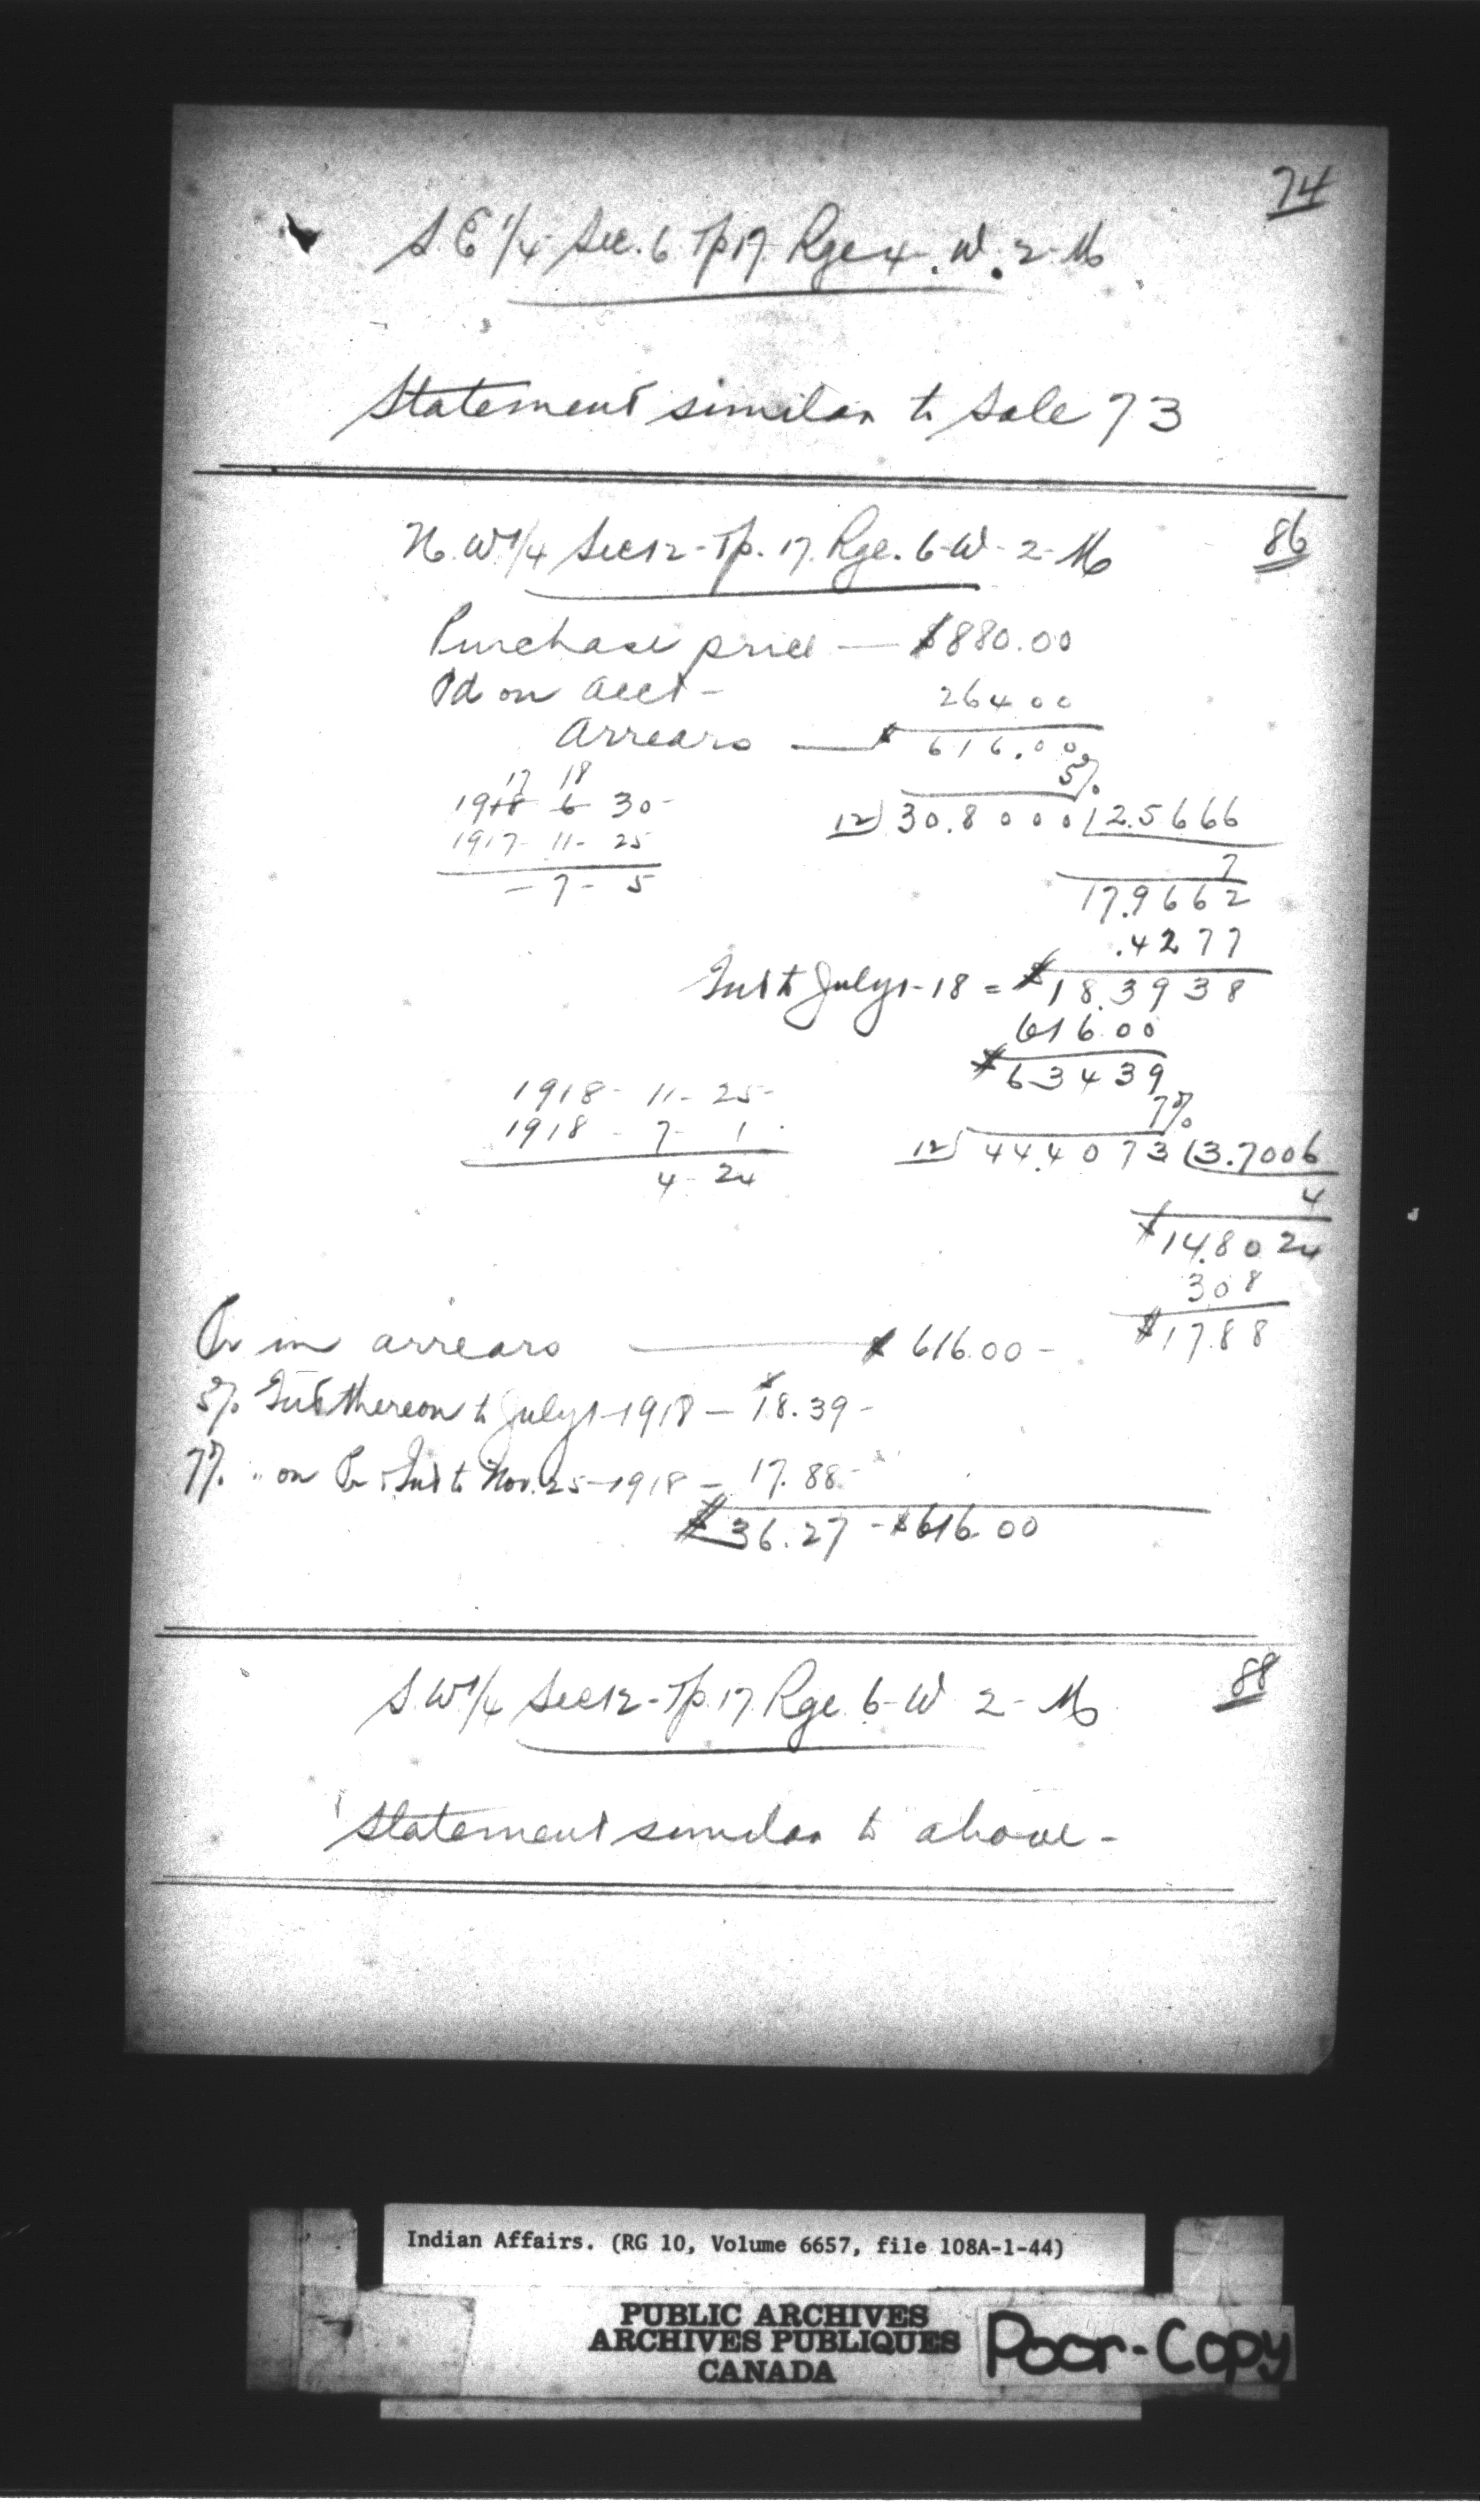 74
S.E 1/4 Sec. 6 Tp 17 Rge 4. W. 2 M
Statement similar to Sale 73
N.W 1/4 Sec 12 - Tp. 17. Rge. 6-W-2-M 86
Purchase price — $880.00
Pd on acct - 264 00
Arrears — $ 616.00
17 18 5%
1918 6 30- 12) 30.8 0 0 0 (2.5666
1917- 11- 25 7
- 7 - 5 17.9662
.4277
Int to July 1-18 = $18.3938
616.00
$63439
1918 - 11 - 25- 7%
1918 - 7- 1 12) 44.4073 (3.7006
4 - 24 4
$14.8024
308
Pr in arrears — $ 616.00 - $17.88
5% Int thereon to July 1-1918 — $18.39-
7% " on Pr & Int to Nov. 25-1918 — 17.88-
$36.27 - $616.00
S.W 1/4 Sec 12 - Tp. 17 Rge 6-W 2-M 88
Statement similar to above -
Indian Affairs. (RG 10, Volume 6657, file 108A-1-44)
PUBLIC ARCHIVES
ARCHIVES PUBLIQUES
CANADA
Poor-Copy